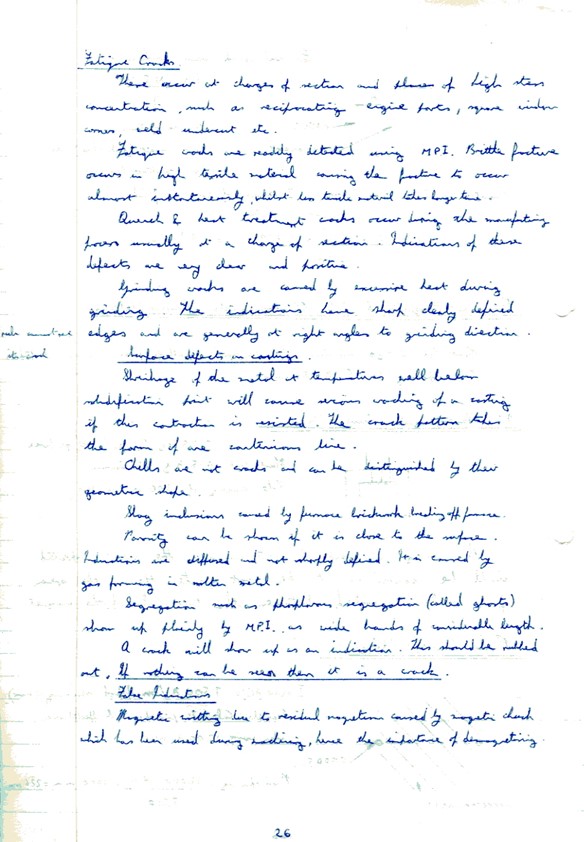 Fatigue Cracks
These occur at changes of section and places of high stress
concentration, such as reciprocating engine parts, square window
corners, weld undercut etc.
Fatigue cracks are readily detected using MPI. Brittle fracture
occurs in high tensile material causing the fracture to occur
almost instantaneously, whilst less tensile material takes longer time.
Quench & heat treatment cracks occur during the manufacturing
process usually at a change of section. Indications of these
defects are very clear and positive.
Grinding cracks are caused by excessive heat during
grinding. The indications have sharp clearly defined
edges and are generally at right angles to grinding direction.
Surface defects in castings.
Shrinkage of the metal at temperatures well below
solidification point will cause serious cracking of a casting
if this contraction is resisted. The crack pattern takes
the form of one continuous line.
Chills are not cracks and can be distinguished by their
geometric shape.
Slag inclusions caused by furnace brickwork breaking off furnace.
Porosity can be shown if it is close to the surface.
Indications are diffused and not sharply defined. It is caused by
gas forming in molten metal.
Segregation such as phosphorous segregation (called ghosts)
show up plainly by M.P.I. as wide bands of considerable length.
A crack will show up as an indication. This should be rubbed
out, If nothing can be seen then it is a crack.
False Indications
Magnetic writing due to residual magnetism caused by magnetic chuck
which has been used during machining, hence the importance of demagnetising.
26